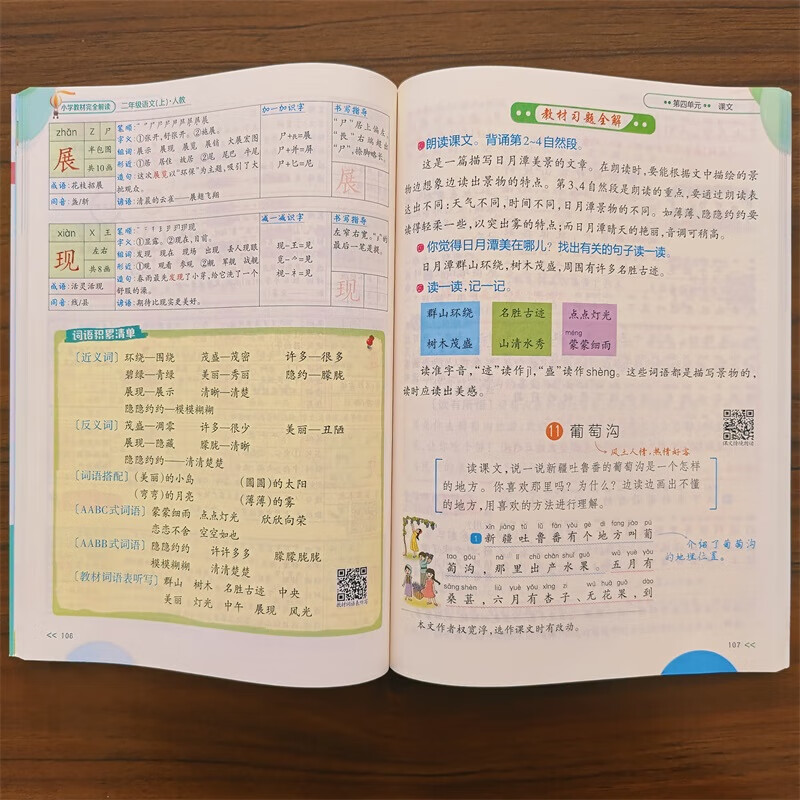 小学教材完全解读 二年级语文(上)·人教
加一加识字
书写指导
zhǎn
尸
展
半包围
共10画
字义:①张开,舒张开。②施展。
组词:展示 展现 展览 展销 大展宏图
形近:①居 居住 故居 ②尾 尾巴 牛尾
造句:这次展览以“环保”为主题,吸引了大
批观众。
成语:花枝招展
同音:盏/斩
谚语:清晨的云雀——展翅飞翔
减一减识字
书写指导
xiàn
现
左右
共8画
字义:①显露。②现在,目前。
组词:发现 现在 现场 出现 丢人现眼
形近:①观 观看 参观 ②舰 军舰 战舰
造句:春雨蓝兔发现了小芽,给它洗了一个
舒服的澡。
成语:活灵活现
同音:线/县
谚语:期待比现实更美好。
现-王=见
观-又=见
视-礻=见
左窄右宽,
最后一笔是提。
现
词语积累清单
[近义词] 环绕—围绕 茂盛—茂密 许多—很多
碧绿—青绿 美丽—秀丽 隐约—朦胧
展现—展示 清晰—清楚
隐隐约约—模模糊糊
[反义词] 茂盛—凋零 许多—很少 美丽—丑陋
展现—隐藏 朦胧—清晰
隐隐约约——清清楚楚
[词语搭配] (美丽)的小岛 (圆圆)的太阳
(弯弯)的月亮 (薄薄)的雾
[AABC式词语] 蒙蒙细雨 点点灯光 欣欣向荣
恋恋不舍 空空如也
[AABB式词语] 隐隐约约 许许多多 朦朦胧胧
模模糊糊 清清楚楚
[教材词语表听写] 群山 树木 名胜古迹 中央
美丽 灯光 中午 展现 风光
教材词语表听写
<< 106
第四单元 课文
教材习题全解
朗读课文。背诵第2~4自然段。
这是一篇描写日月潭美景的文章。在朗读时,要能根据文中描绘的景
物边想象边读出景物的特点。第3、4自然段是朗读的重点,要通过朗读表
达出不同:天气不同,时间不同,日月潭景物的不同。如薄薄、隐隐约约要
读得轻柔一些,以突出雾的特点;而日月潭晴天的艳丽,音调可稍高。
你觉得日月潭美在哪儿?找出有关的句子读一读。
日月潭群山环绕,树木茂盛,周围有许多名胜古迹。
读一读,记一记。
群山环绕 名胜古迹 点点灯光
méng
树木茂盛 山清水秀 蒙蒙细雨
读准字音,“迹”读作jì,“盛”读作shèng。这些词语都是描写景物的,
读时应读出美感。
11 葡萄沟
课文诵读朗诵
风土人情,热情好客
读课文,说一说新疆吐鲁番的葡萄沟是一个怎样
的地方。你喜欢那里吗?为什么?边读边画出不懂
的地方,用喜欢的方法进行理解。
xīn jiāng tǔ lǔ fān yǒu gè dì fang jiào pú
1 新疆吐鲁番有个地方叫葡
tao gōu nà lǐ chū chǎn shuǐ guǒ wǔ yuè yǒu
萄沟,那里出产水果。五月有
sāng shèn liù yuè yǒu xìng zi wú huā guǒ dào
桑葚,六月有杏子、无花果,到
介绍了葡萄沟
的地理位置。
本文作者权宽浮,选作课文时有改动。
107 <<